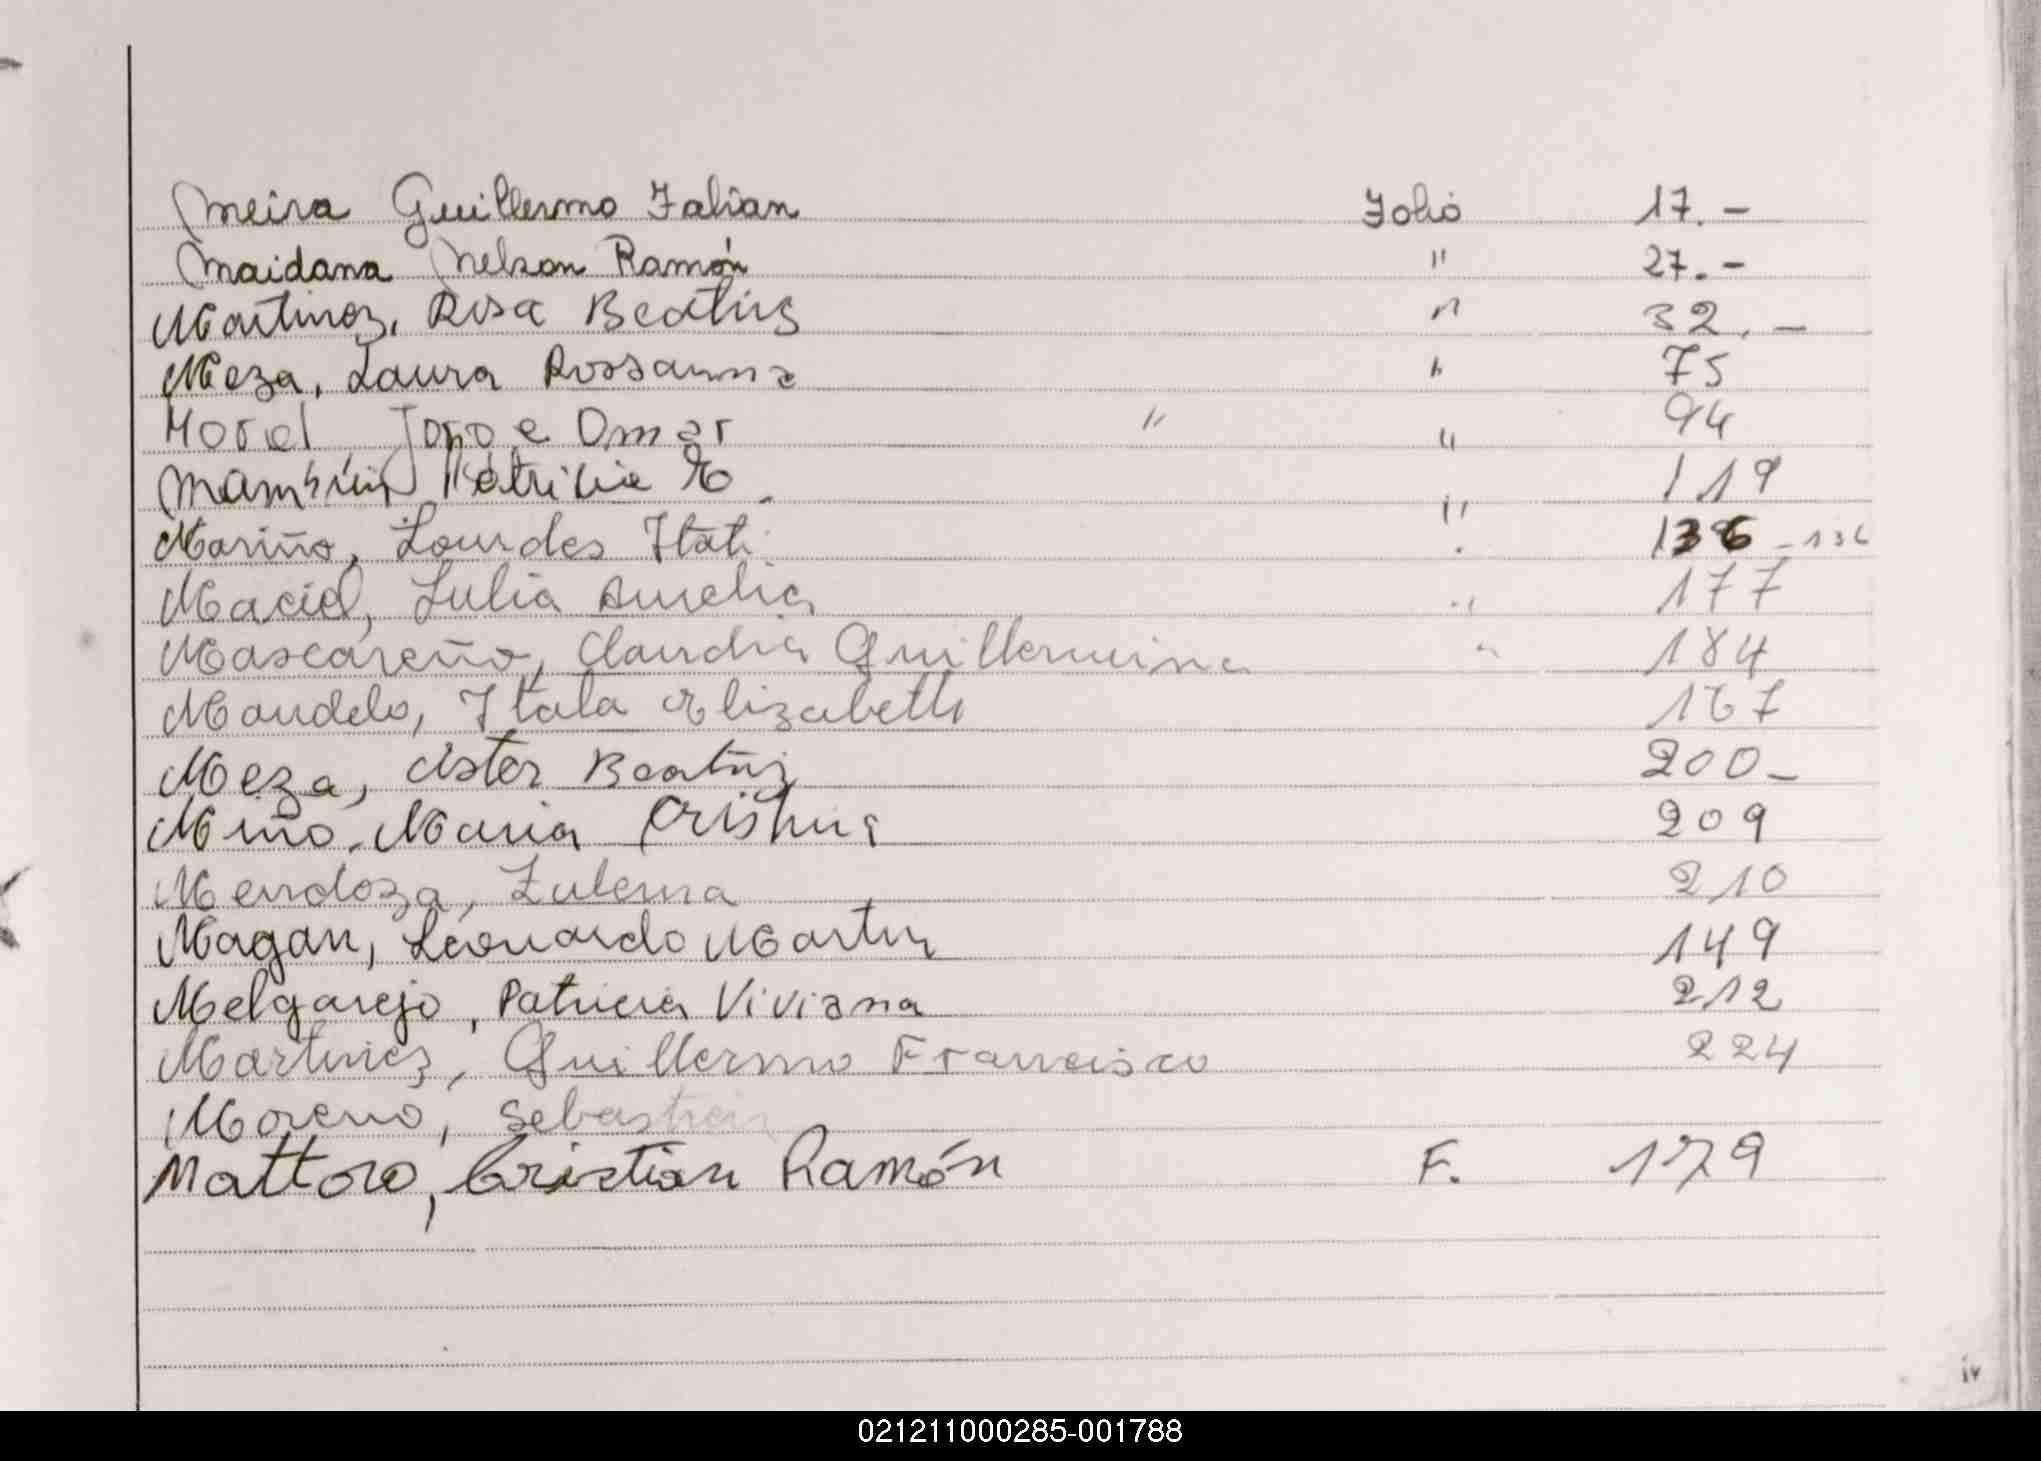 Meira Guillermo Fabian Folio 17.-
Maidana Nelson Ramón " 27.-
Martinez, Rosa Beatriz " 32.-
Meza, Laura Rossanna " 75
Morel Jorge Omar " " 94
Patricia E. " 119
Mariño, Lourdes Itati " 136 - 136
Maciel, Julia Amelia " 177
Mascareño, Claudia Guillermina " 184
Maudelo, Itala Elizabeth 167
Meza, Ester Beatriz 200-
Miño, Maria Cristina 209
Mendoza, Zulema 210
Magan, Leonardo Martin 149
Melgarejo, Patricia Viviana 212
Martinez, Guillermo Francisco 224
Moreno, Sebastian
Mattoro, Cristian Ramón F. 179
iv
021211000285-001788